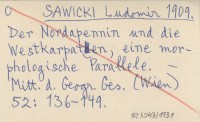 SAWICKI Ludomir 1909.
Der Nordapennin und die
Westkarpathen, eine mor-
phologische Parallele. –
Mitt. d. Geogr. Ges. (Wien)
52: 136-149.